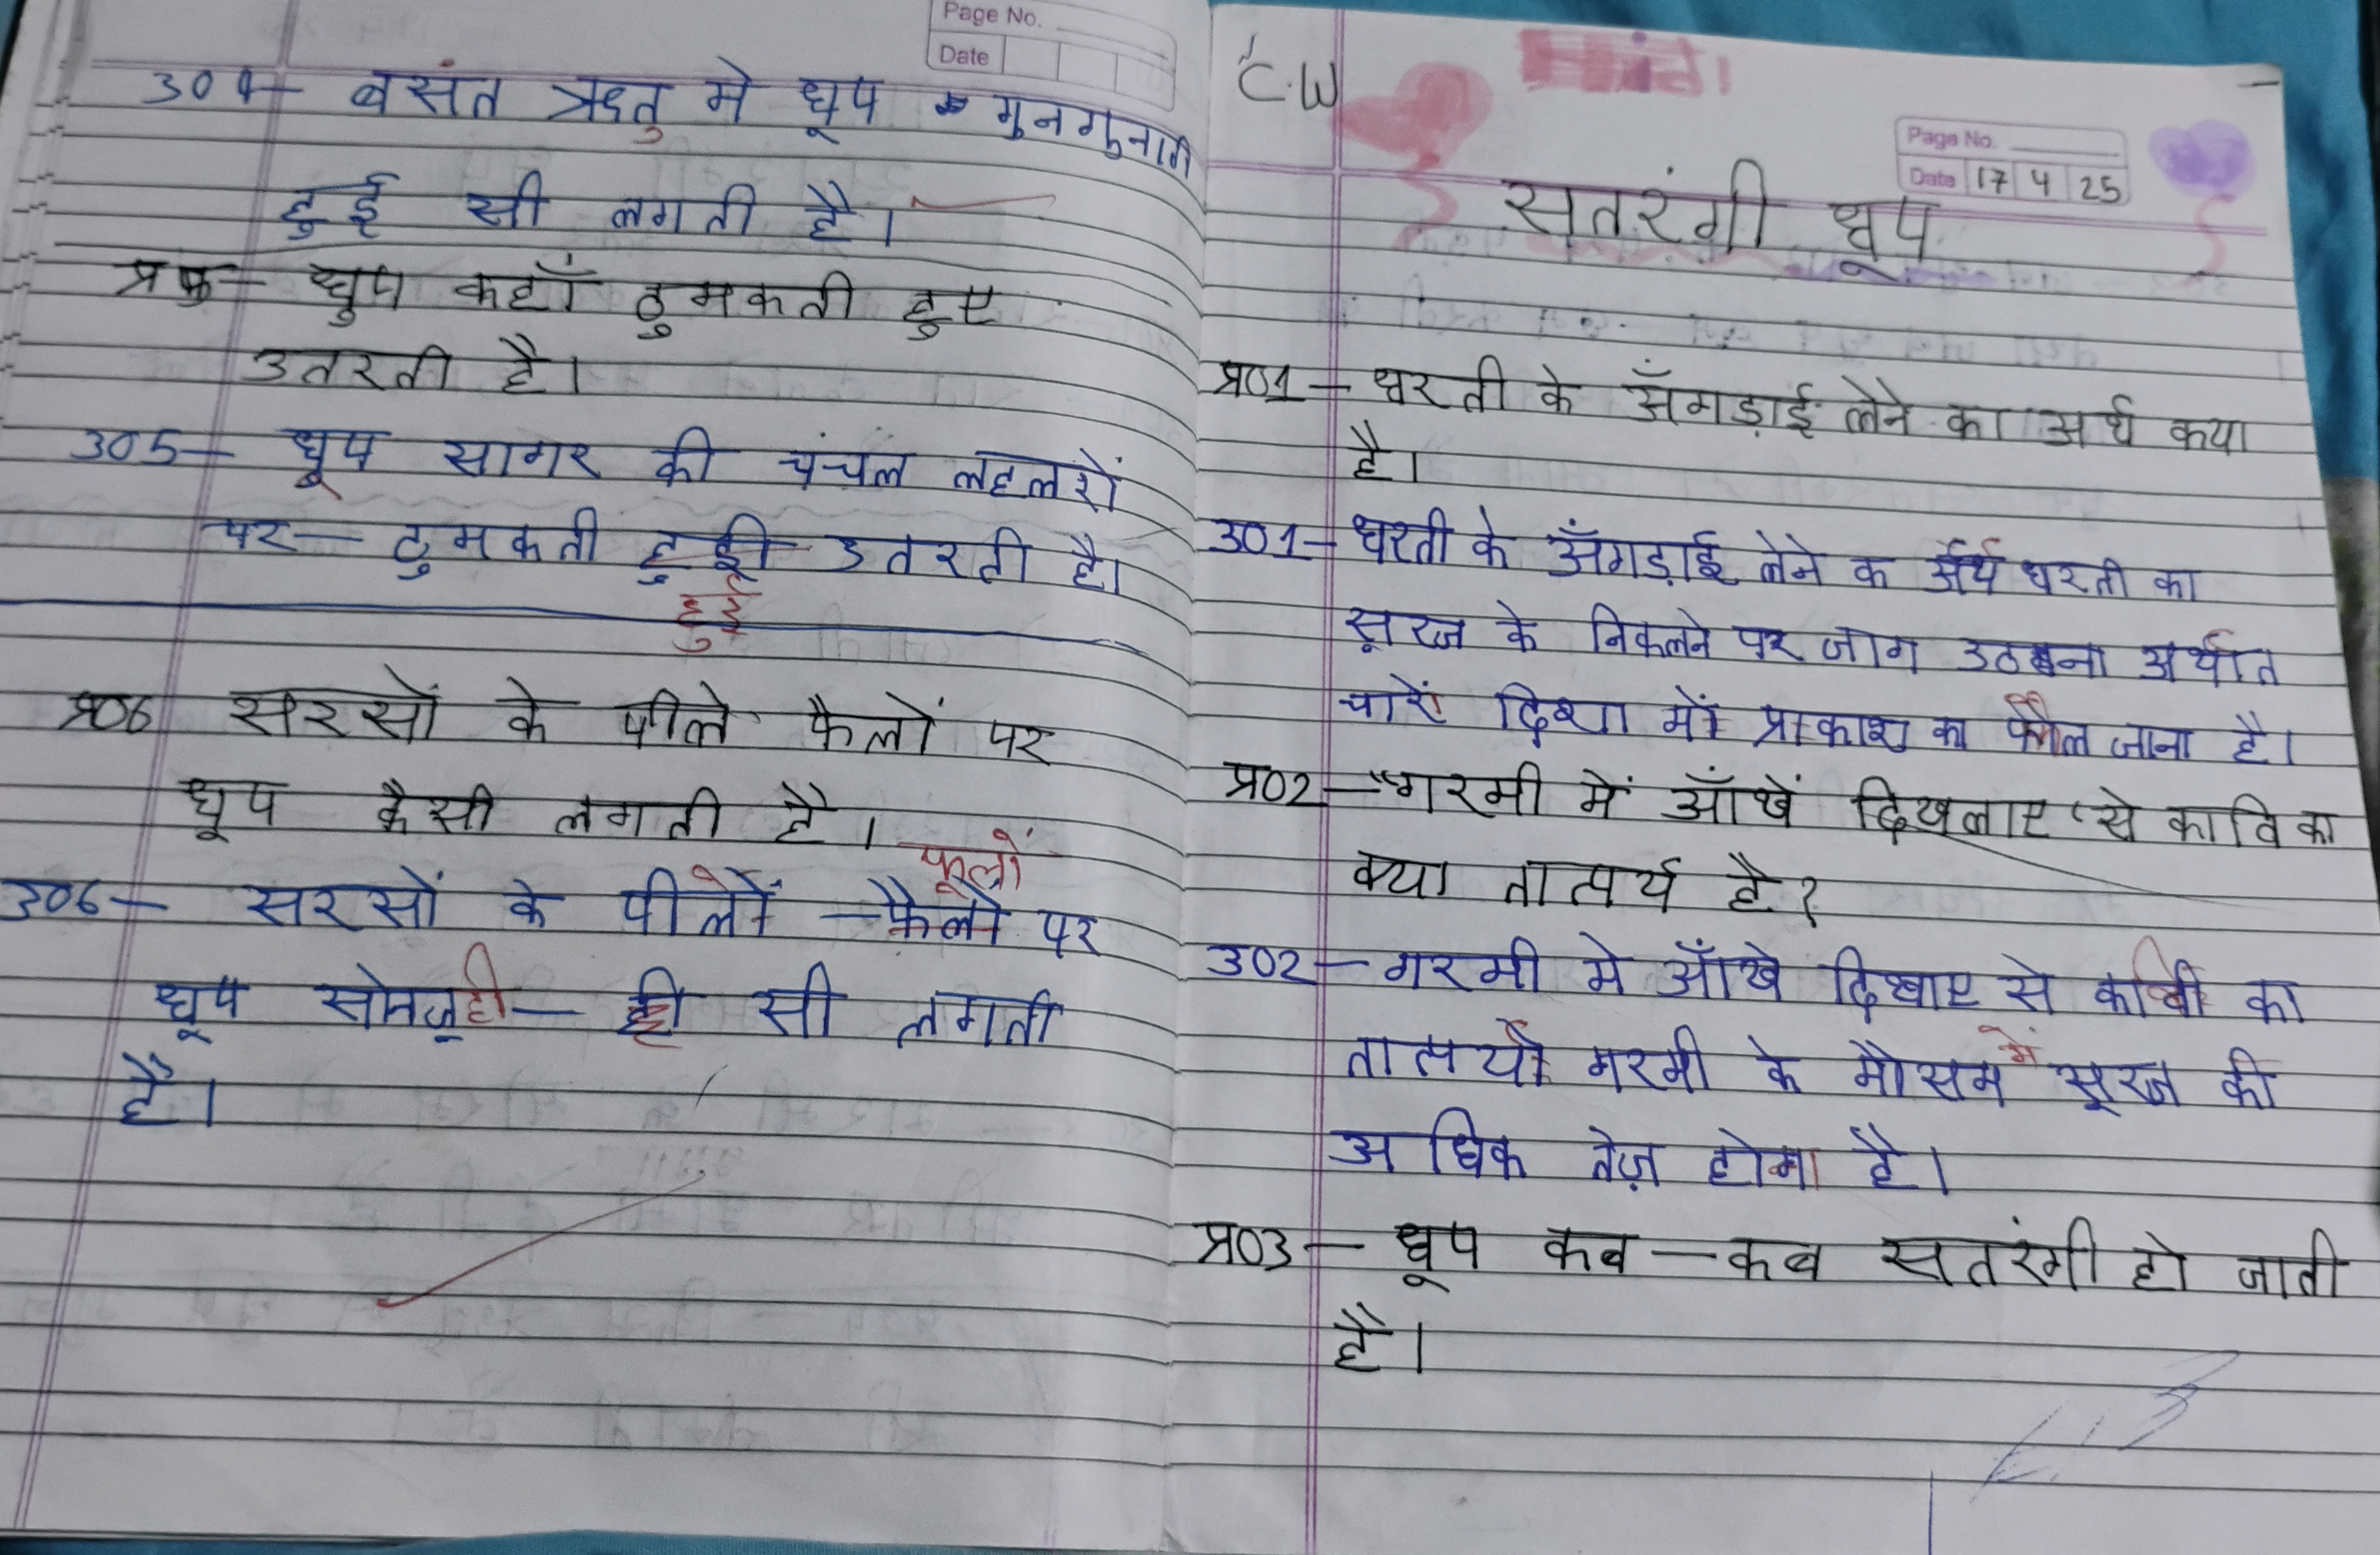 Page No.
Date
उ०4- बसंत ऋतु मे धूप गुनगुनाती
हुई सी लगती है।
प्र - धुप कहाँ ठुमकती हुए
उतरती है।
उ०5- धूप सागर की चंचल लहलरों
पर- ठुमकती हुई उतरती है।
हुई
प्र०6 सरसों के पीले फैलों पर
धूप कैसी लगती है।
फूलों
उ०6- सरसों के पीले फैलो पर
धूप सोनजूही- ही सी लगती
है।
C.W
Hindi
Page No.
Date 17 4 25
सतरंगी धूप
प्र०1- धरती के अँगड़ाई लेने का अर्थ कया
है।
उ०1- धरती के अँगड़ाई लेने क अर्थ धरती का
सूरज के निकलने पर जाग उठना अर्थात
चारों दिशा में प्राकाश का फैल जाना है।
प्र०2- "गरमी में आँखें दिखलाए 'से कावि का
क्या तात्पर्य है?
उ०2- गरमी मे आँखे दिखाए से कवि का
तात्पर्य गरमी के मौसम में सूरज की
अधिक तेज़ होना है।
प्र०3- धूप कब-कब सतरंगी हो जाती
है।